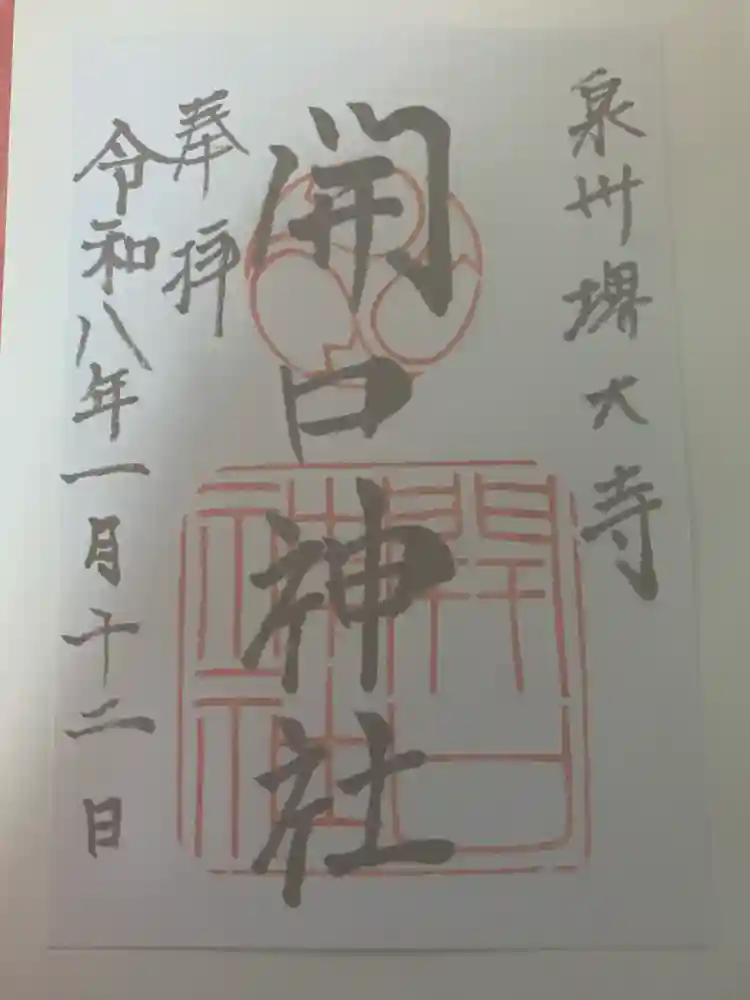 泉州堺大寺
開口神社
奉拝
令和八年一月十二日
開口神社